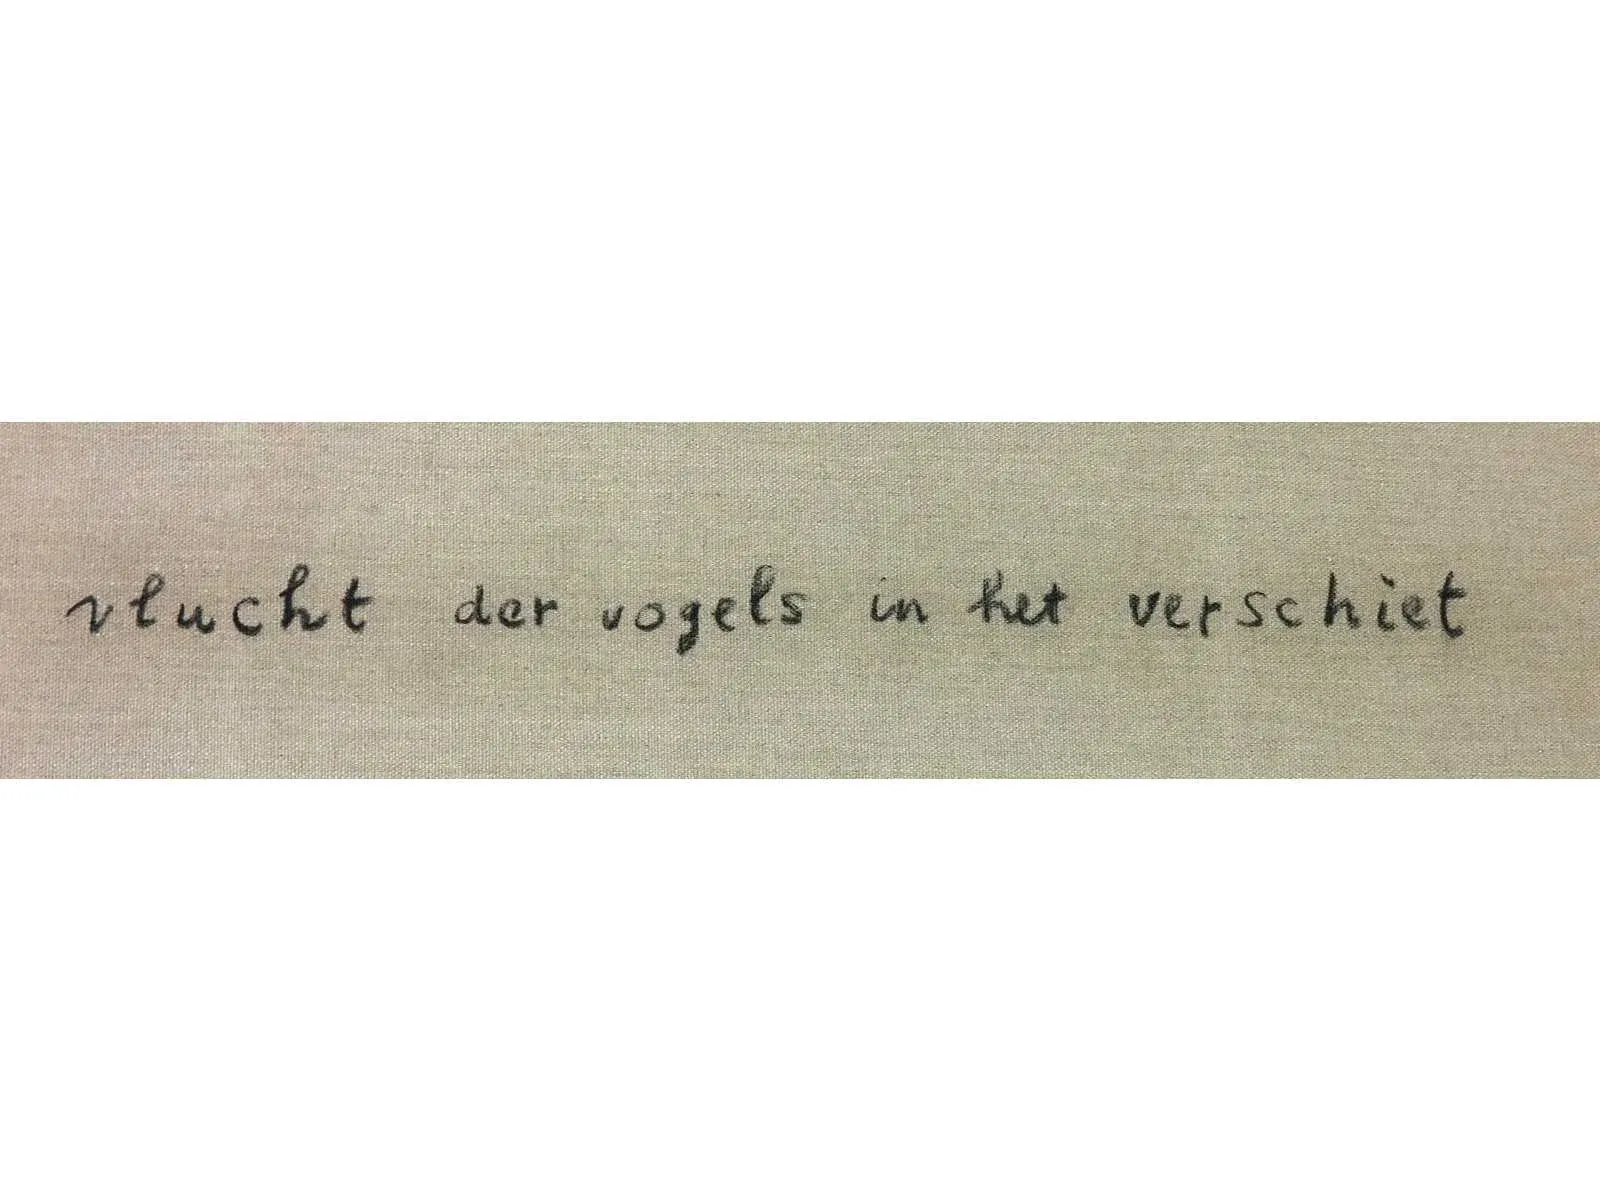 vlucht der vogels in het verschiet